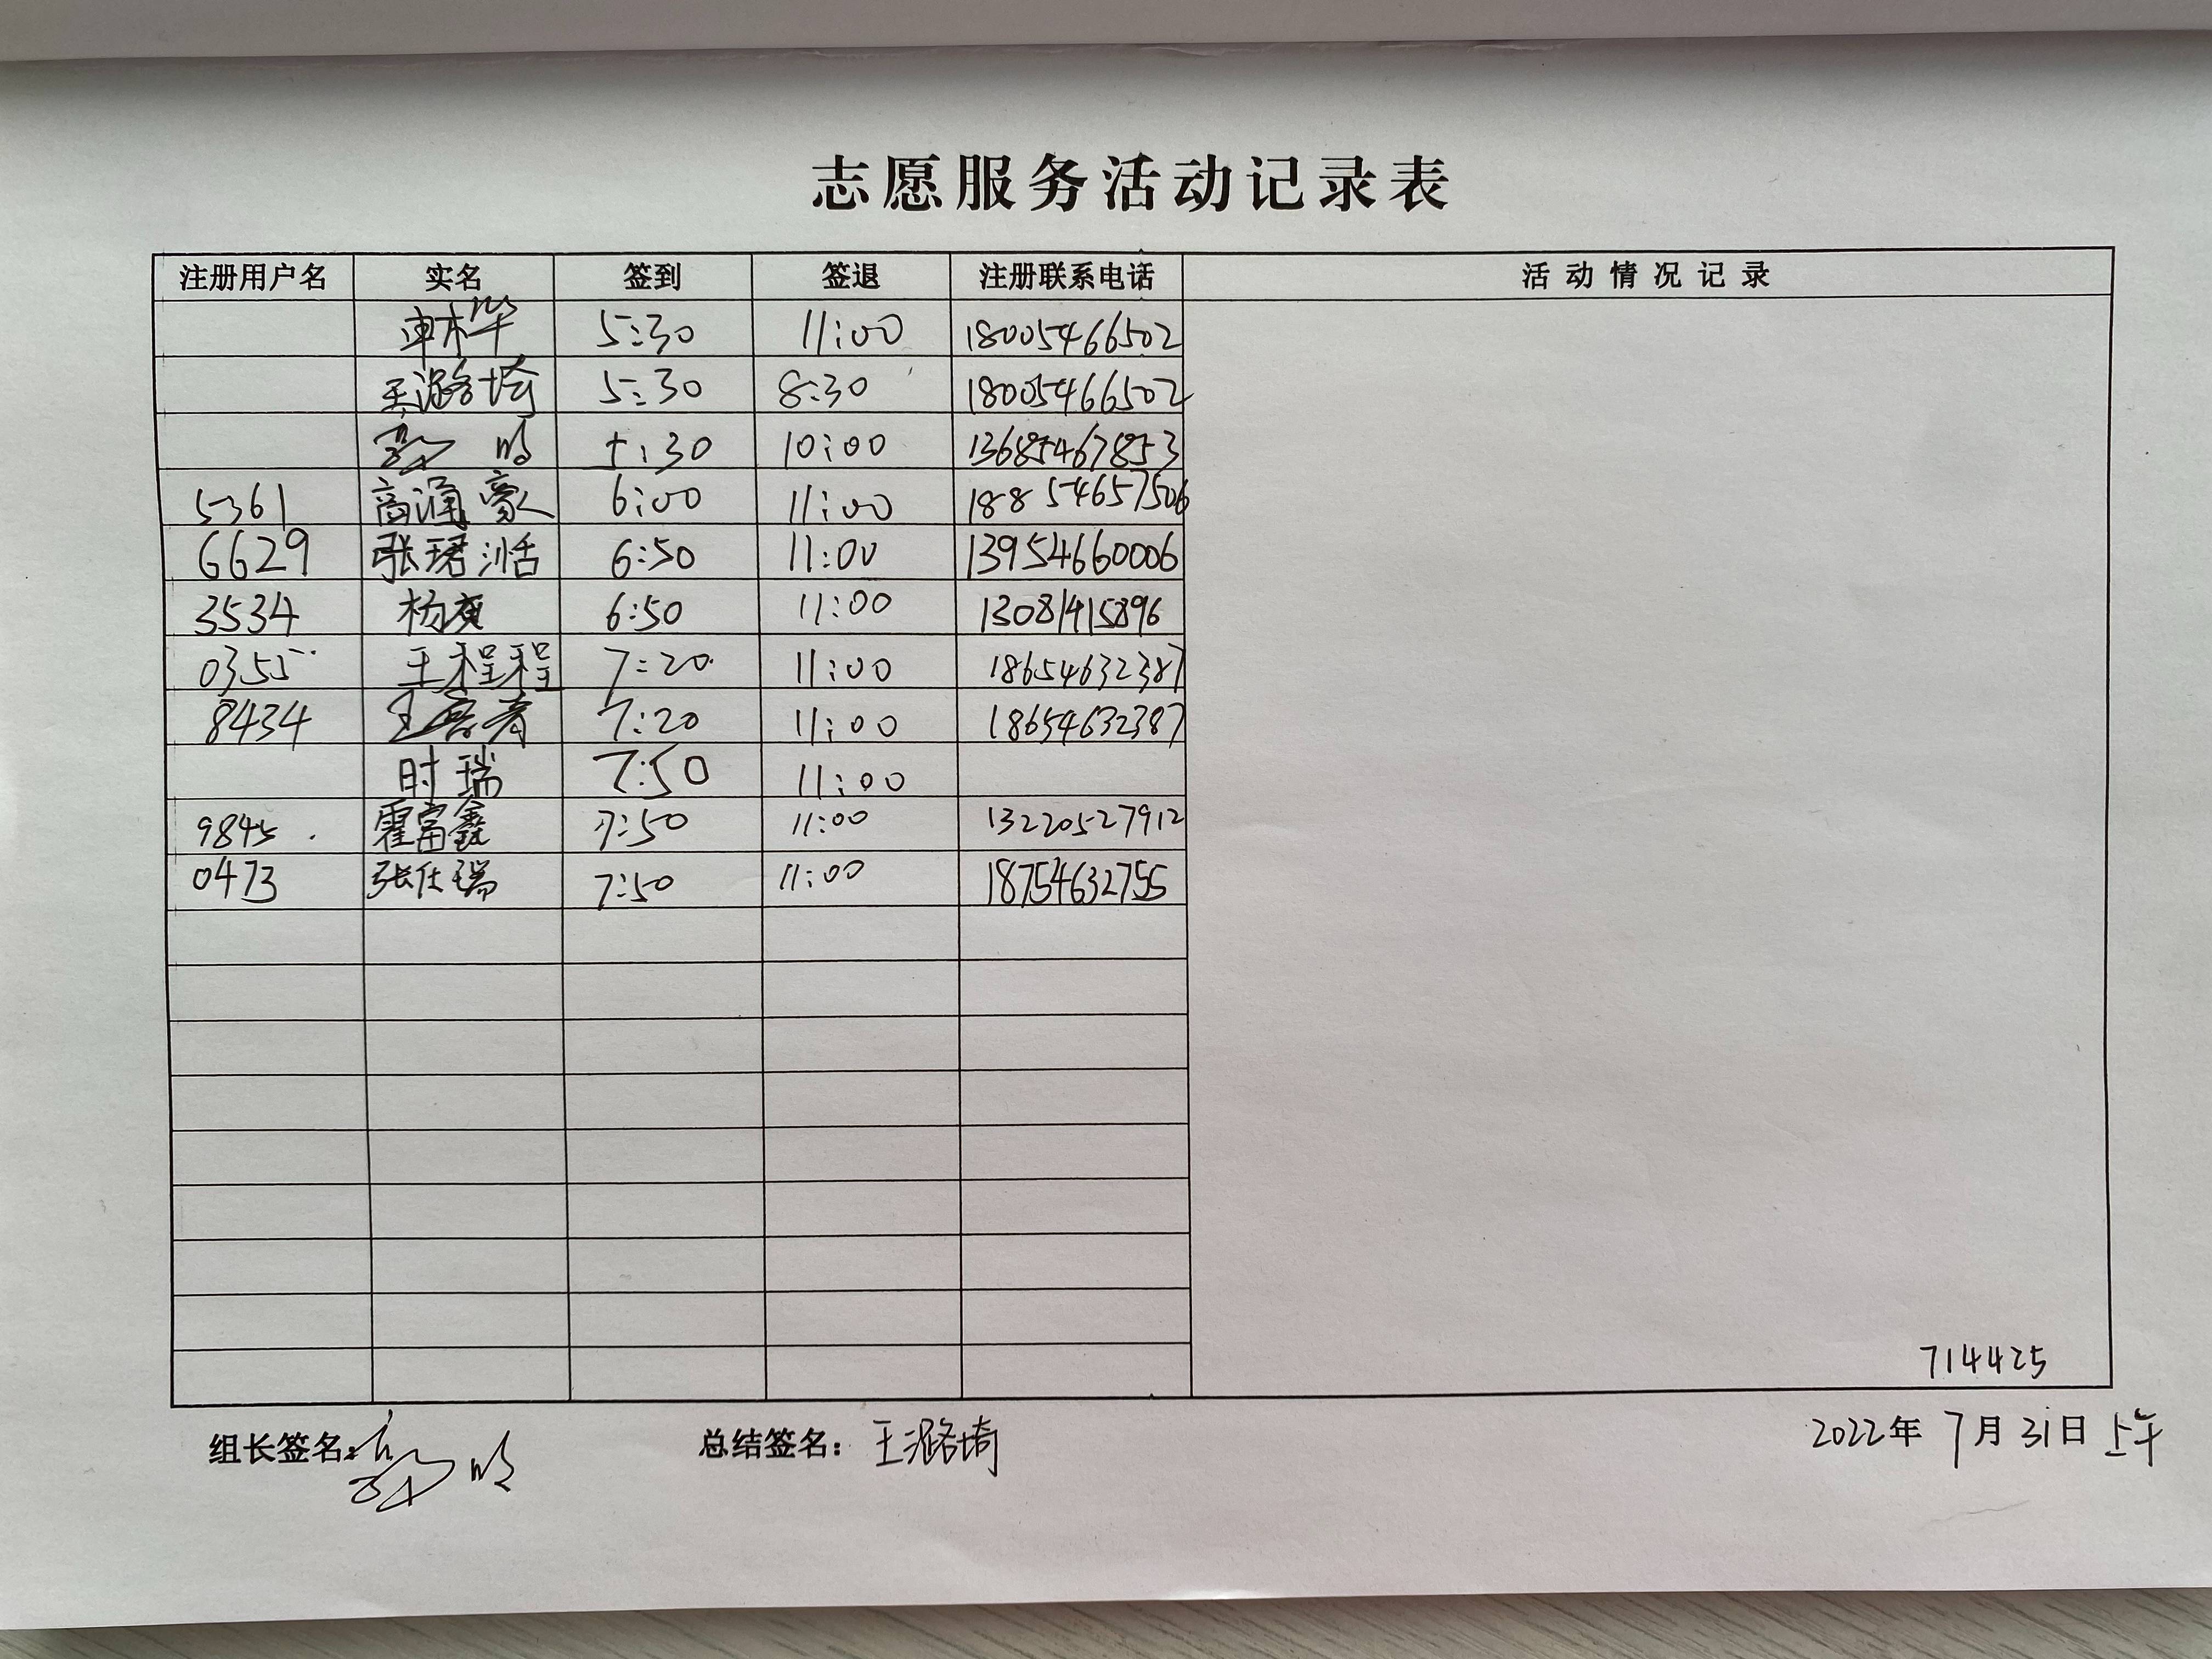 志愿服务活动记录表
注册用户名 实名 签到 签退 注册联系电话 活动情况记录
车木华 5:30 11:00 18005466502
王潞埼 5:30 8:30 18005466502
明 5:30 10:00 13685467853
5361 商涌豪 6:00 11:00 18854657506
6629 张珺湉 6:50 11:00 13954660006
3534 杨爽 6:50 11:00 13081415896
0355 王程程 7:20 11:00 18654632387
8434 王 7:20 11:00 18654632387
时瑞 7:50 11:00
9845 霍富鑫 7:50 11:00 13220527912
0473 张仕瑞 7:50 11:00 18754632755
714425
组长签名: 明 总结签名: 王潞埼 2022年 7月 31日 上午